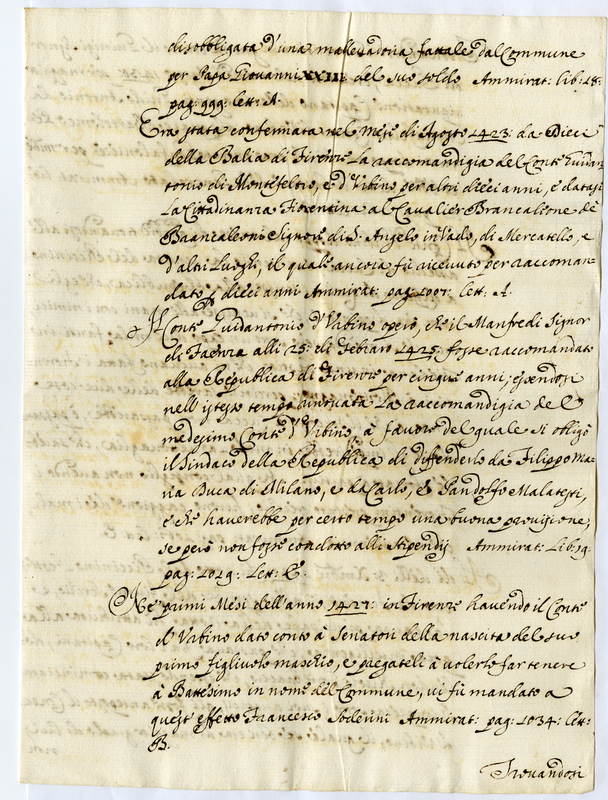 disobbligata d'una mallevadoria fattale dal Commune
per Papa Giovanni XXIII: del suo soldo Ammirat: lib: 18:
pag: 999: lett: A.
Era stata confermata nel Mese di Agosto 1423: da Dieci
della Balia di Firenze la raccomandigia del Conte Guidan-
tonio di Montefeltro, e d'Vrbino per altri dieci anni, e datasi
la Cittadinanza Fiorentina al Cavalier Brancalione de
Brancaleoni Signore di S. Angelo in Vado, di Mercatello, e
d'altri Luoghi, il quale ancora fù ricevuto per raccoman-
dato p dieci anni Ammirat: pag: 1007: lett: A.
Il Conte Guidantonio d'Vrbino operò, che il Manfredi Signor
di Faenza alli 25: di Febraro 1425: fosse raccomandato
alla Republica di Firenze per cinque anni, essendosi
nell'istesso tempo rinouata la raccomandigia del
medesimo Conte d'Vrbino, à favore del quale si obligò
il Sindaco della Republica di diffenderlo da Filippo Ma-
ria Duca di Milano, e da Carlo, e Pandolfo Malatesti,
e che haverebbe per certo tempo una buona provisione,
se però non fosse condotto alli stipendij Ammirat: Lib: 19:
pag: 1019: Lett: E.
Ne' primi Mesi dell'anno 1427: in Firenze havendo il Conte
d'Vrbino dato conto à Senatori della nascita del suo
primo figliuolo maschio, e pregateli à volerlo far tenere
à Battesimo in nome del Commune, ui fù mandato a
quest'effetto Francesco Soderini Ammirat: pag: 1034: lett:
B.
Trouandosi